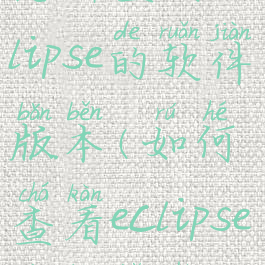 de ruǎn jiàn
lipse的软件
bǎn běn rú hé
版本(如何
chá kàn
查看eclipse